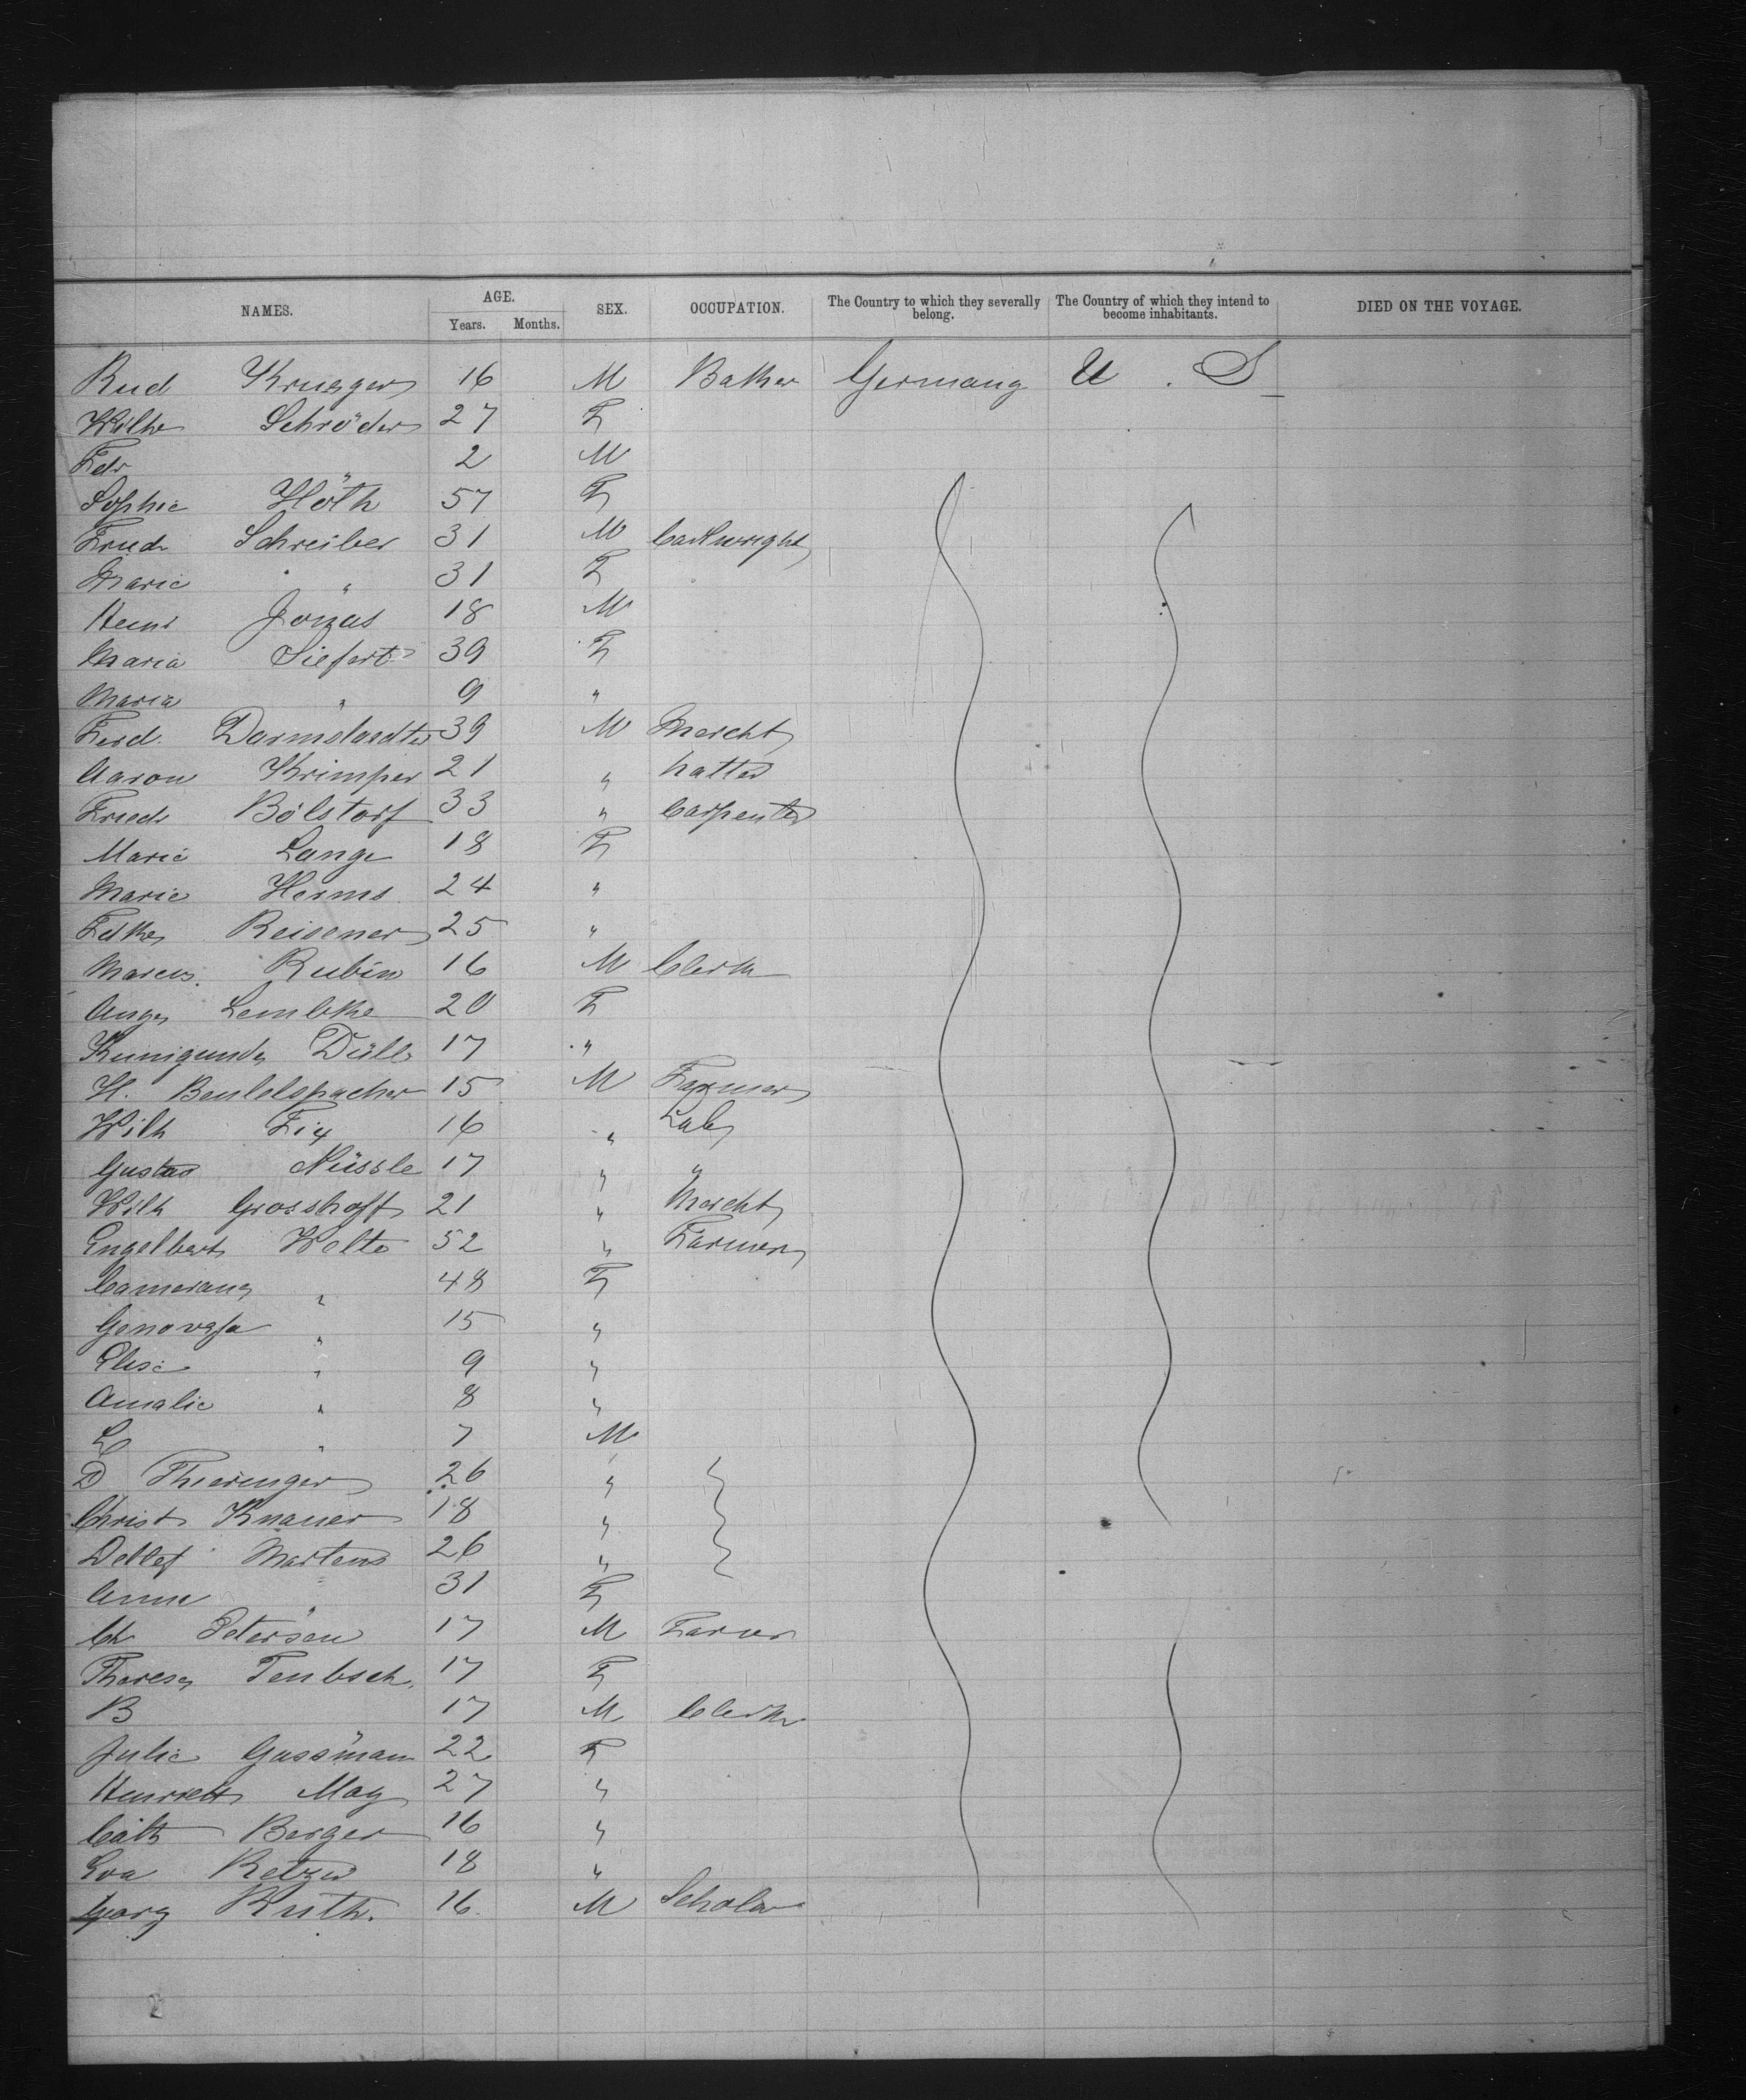 NAMES. AGE. SEX. OCCUPATION. The Country to which they severally belong. The Country of which they intend to become inhabitants. DIED ON THE VOYAGE.
Years. Months.
Rud Kruegger 16 M Baker Germany U. S
Wilhe Schröder 27 F
Fdr 2 M
Sophie Höth 57 F
Friedr Schreiber 31 M Cartwright
Marie " 31 F
Heinr Jonas 18 M
Maria Siefert 39 F
Maria " 9 "
Ferd. Darmstaedter 39 M Mercht
Aaron Krimper 21 " hatter
Friedr Bölstorf 33 " Carpenter
Marie Lange 18 F
Marie Herms 24 "
Reisener 25 "
Marcus. Rubin 16 M Clerk
Lembke 20 F
Kunigunda Düll 17 "
H. Beutelspacher 15 M Farmer
Wilh Fix 16 " Lab
Gustav Nüssle 17 " "
Wilh Grosshoff 21 " Mercht
Engelbert Welte 52 " Farmer
" 48 F
Genovefa " 15 "
Elise " 9 "
Amalie " 8 "
" 7 M
D Thieringer 26 "
Christ Knauer 18 "
Detlef Martens 26 "
Anna " 31 F
Ch Petersen 17 M Farmer
Theresa 17 F
B 17 M Clerk
Julie Gassman 22 F
May 27 "
Cath Berger 16 "
Eva Retzer 18 "
Georg Ruth. 16. M Scholar